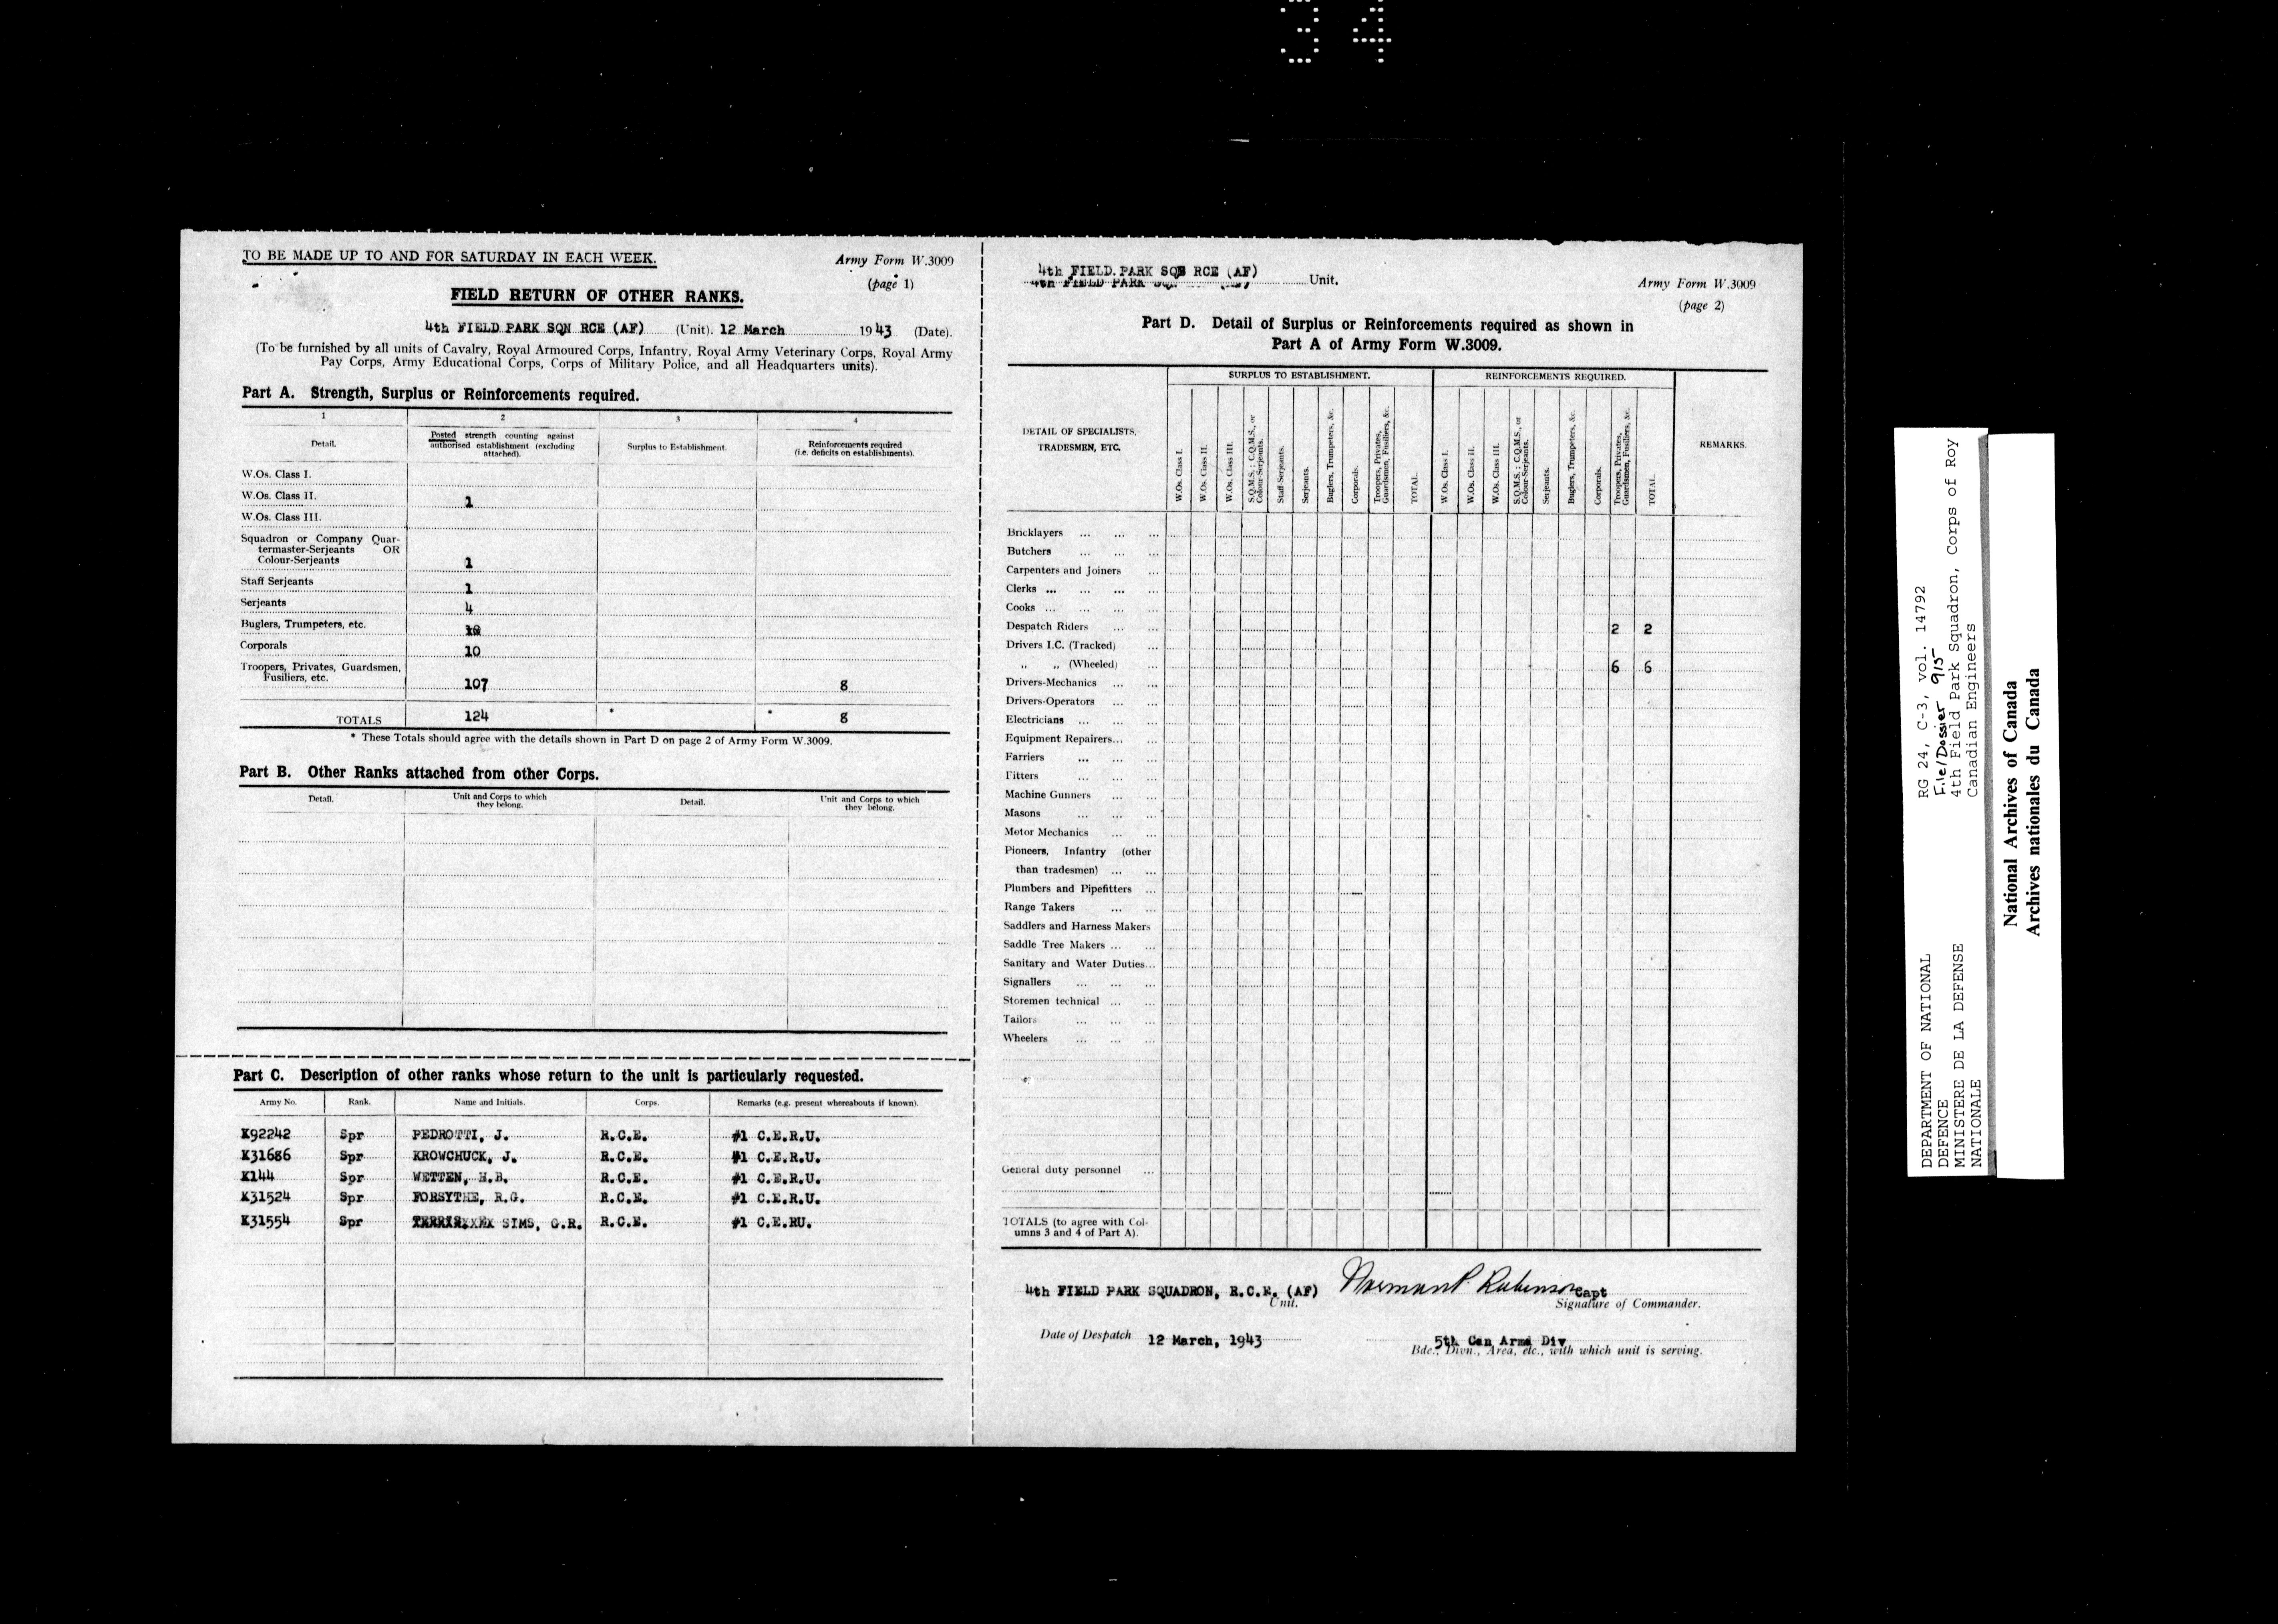 34
TO BE MADE UP TO AND FOR SATURDAY IN EACH WEEK.
Army Form W.3009
(page 1)
FIELD RETURN OF OTHER RANKS.
4th FIELD PARK SQN RCE (AF) (Unit). 12 March 1943 (Date).
(To be furnished by all units of Cavalry, Royal Armoured Corps, Infantry, Royal Army Veterinary Corps, Royal Army
Pay Corps, Army Educational Corps, Corps of Military Police, and all Headquarters units).
Part A. Strength, Surplus or Reinforcements required.
1 2 3 4
Detail. Posted strength counting against authorised establishment (excluding attached). Surplus to Establishment. Reinforcements required (i.e. deficits on establishments).
W.Os. Class I.
W.Os. Class II. 1
W.Os. Class III.
Squadron or Company Quar-
termaster-Serjeants OR
Colour-Serjeants 1
Staff Serjeants 1
Serjeants 4
Buglers, Trumpeters, etc.
Corporals 10
Troopers, Privates, Guardsmen,
Fusiliers, etc. 107 8
TOTALS 124 * * 8
* These Totals should agree with the details shown in Part D on page 2 of Army Form W.3009.
Part B. Other Ranks attached from other Corps.
Detail. Unit and Corps to which they belong. Detail. Unit and Corps to which they belong.
Part C. Description of other ranks whose return to the unit is particularly requested.
Army No. Rank. Name and Initials. Corps. Remarks (e.g. present whereabouts if known).
K92242 Spr PEDROTTI, J. R.C.E. #1 C.E.R.U.
K31686 Spr KROWCHUCK, J. R.C.E. #1 C.E.R.U.
K144 Spr WETTEN, H.B. R.C.E. #1 C.E.R.U.
K31524 Spr FORSYTHE, R.G. R.C.E. #1 C.E.R.U.
K31554 Spr SIMS, G.R. R.C.E. #1 C.E.RU.
4th FIELD PARK SQN RCE (AF)
4th FIELD PARK Unit.
Army Form W.3009
(page 2)
Part D. Detail of Surplus or Reinforcements required as shown in
Part A of Army Form W.3009.
DETAIL OF SPECIALISTS, TRADESMEN, ETC.
SURPLUS TO ESTABLISHMENT.
W.Os. Class I.
W.Os. Class II.
W.Os. Class III.
S.Q.M.S.; C.Q.M.S., or Colour-Serjeants.
Staff-Serjeants.
Serjeants.
Buglers, Trumpeters, &c.
Corporals.
Troopers, Privates, Guardsmen, Fusiliers, &c.
TOTAL
REINFORCEMENTS REQUIRED.
W.Os. Class I.
W.Os. Class II.
W.Os. Class III.
S.Q.M.S.; C.Q.M.S., or Colour-Serjeants.
Serjeants.
Buglers, Trumpeters, &c.
Corporals.
Troopers, Privates, Guardsmen, Fusiliers, &c.
TOTAL.
REMARKS.
Bricklayers ... ... ...
Butchers ... ... ...
Carpenters and Joiners ...
Clerks ... ... ... ...
Cooks ... ... ... ...
Despatch Riders ... ... 2 2
Drivers I.C. (Tracked) ...
" " (Wheeled) ... 6 6
Drivers-Mechanics ... ...
Drivers-Operators ... ...
Electricians ... ... ...
Equipment Repairers... ...
Farriers ... ... ...
Fitters ... ... ...
Machine Gunners ... ...
Masons ... ... ...
Motor Mechanics ... ...
Pioneers, Infantry (other
than tradesmen) ... ...
Plumbers and Pipefitters ...
Range Takers ... ...
Saddlers and Harness Makers
Saddle Tree Makers ... ...
Sanitary and Water Duties...
Signallers ... ... ...
Storemen technical ... ...
Tailors ... ... ...
Wheelers ... ... ...
General duty personnel ...
TOTALS (to agree with Col-
umns 3 and 4 of Part A).
4th FIELD PARK SQUADRON, R.C.E. (AF)
Unit.
Norman P. Robinson Capt
Signature of Commander.
Date of Despatch 12 March, 1943
5th Can Armd Div
Bde., Divn., Area, etc., with which unit is serving.
DEPARTMENT OF NATIONAL
DEFENCE
MINISTERE DE LA DEFENSE
NATIONALE
RG 24, C-3, vol. 14792
File/Dossier 915
4th Field Park Squadron, Corps of Roy
Canadian Engineers
National Archives of Canada
Archives nationales du Canada